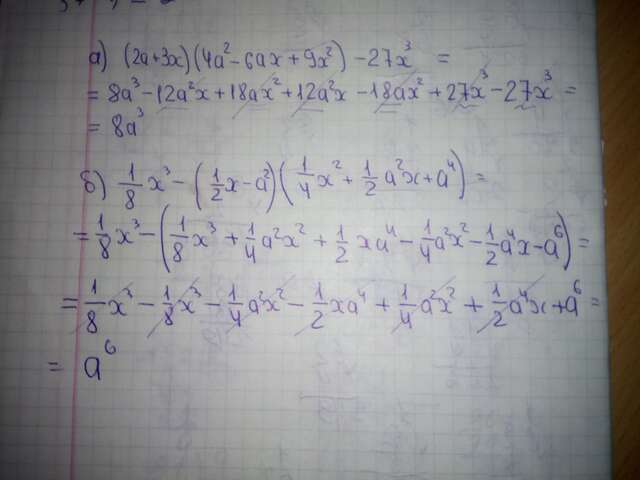 а) (2a+3x)(4a²-6ax+9x²)-27x³ =
= 8a³-12a²x+18ax²+12a²x-18ax²+27x³-27x³ =
= 8a³
б) 1/8 x³ - (1/2 x-a²)(1/4 x² + 1/2 a²x+a⁴) =
= 1/8 x³ - (1/8 x³ + 1/4 a²x² + 1/2 xa⁴ - 1/4 a²x² - 1/2 a⁴x - a⁶) =
= 1/8 x³ - 1/8 x³ - 1/4 a²x² - 1/2 xa⁴ + 1/4 a²x² + 1/2 a⁴x + a⁶ =
= a⁶